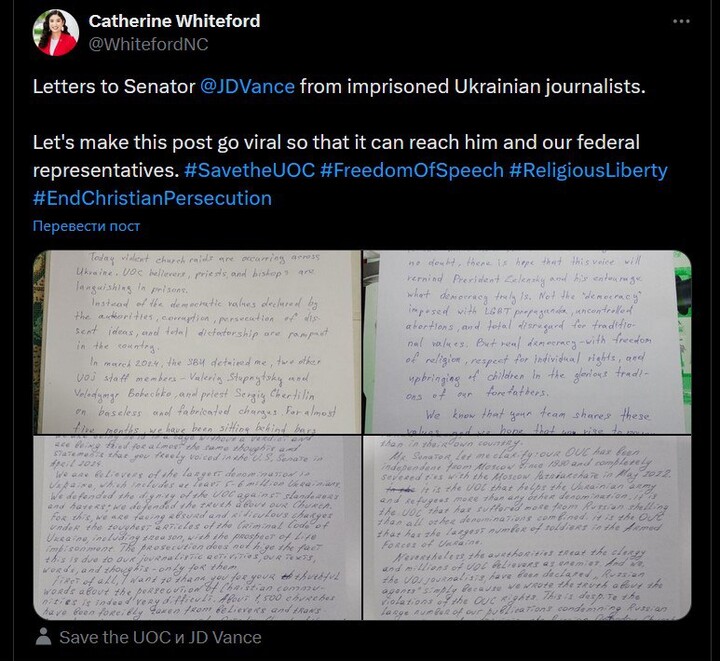 Catherine Whiteford
@WhitefordNC
Letters to Senator @JDVance from imprisoned Ukrainian journalists.
Let's make this post go viral so that it can reach him and our federal
representatives. #SavetheUOC #FreedomOfSpeech #ReligiousLiberty
#EndChristianPersecution
Перевести пост
Today violent church raids are occurring across
Ukraine. UOC believers, priests, and bishops are
languishing in prisons.
Instead of the democratic values declared by
the authorities, corruption, persecution of dis-
sent ideas, and total dictatorship are rampant
in the country.
In march 2024, the SBU detained me, two other
UOJ staff members - Valeriy Stupnytsky and
Volodymyr Bobechko, and priest Sergiy Chertilin
on baseless and fabricated charges. For almost
five months, we have been sitting behind bars
no doubt, there is hope that this voice will
remind President Zelensky and his entourage
what democracy truly is. Not the "democracy"
imposed with LGBT propaganda, uncontrolled
abortions, and total disregard for traditio-
nal values. But real democracy - with freedom
of religion, respect for individual rights, and
upbringing of children in the glorious tradi-
ons of our forefathers.
We know that your team shares these
values, and we hope that
a cage without a verdict and
are being tried for almost the same thoughts and
statements that you freely voiced in the U.S. Senate in
April 2024.
We are believers of the largest denomination in
Ukraine, which includes at least 5-6 million Ukrainians.
We defended the dignity of the UOC against slanderers
and haters; we defended the truth about our Church.
For this, we are facing absurd and ridiculous charges
under the toughest articles of the Criminal Code of
Ukraine, including treason, with the prospect of life
imprisonment. The prosecution does not hide the fact
this is due to our journalistic activities, our texts,
words, and thoughts - only for them.
First of all, I want to thank you for your truthful
words about the persecution of Christian commu-
nities is indeed very difficult. About 1500 churches
have been forcibly taken from believers and trans-
than in their own country.
Mr Senator, let me clarify: our UOC has been
independent from Moscow since 1990 and completely
severed ties with the Moscow Patriarchate in May 2022.
it is the UOC that helps the Ukrainian army
and refugees more than any other denomination, it is
the UOC that has suffered more from Russian shelling
than all other denominations combined, it is the OUC
that has the largest number of soldiers in the Armed
Forces of Ukraine.
Nevertheless the authorities treat the clergy
and millions of UOC believers as enemies. And we,
the UOJ journalists, have been declared „Russian
agents" simply because we wrote the truth about the
violations of the OUC rights. This is despite the
large number of our publications condemning Russian
Save the UOC и JD Vance